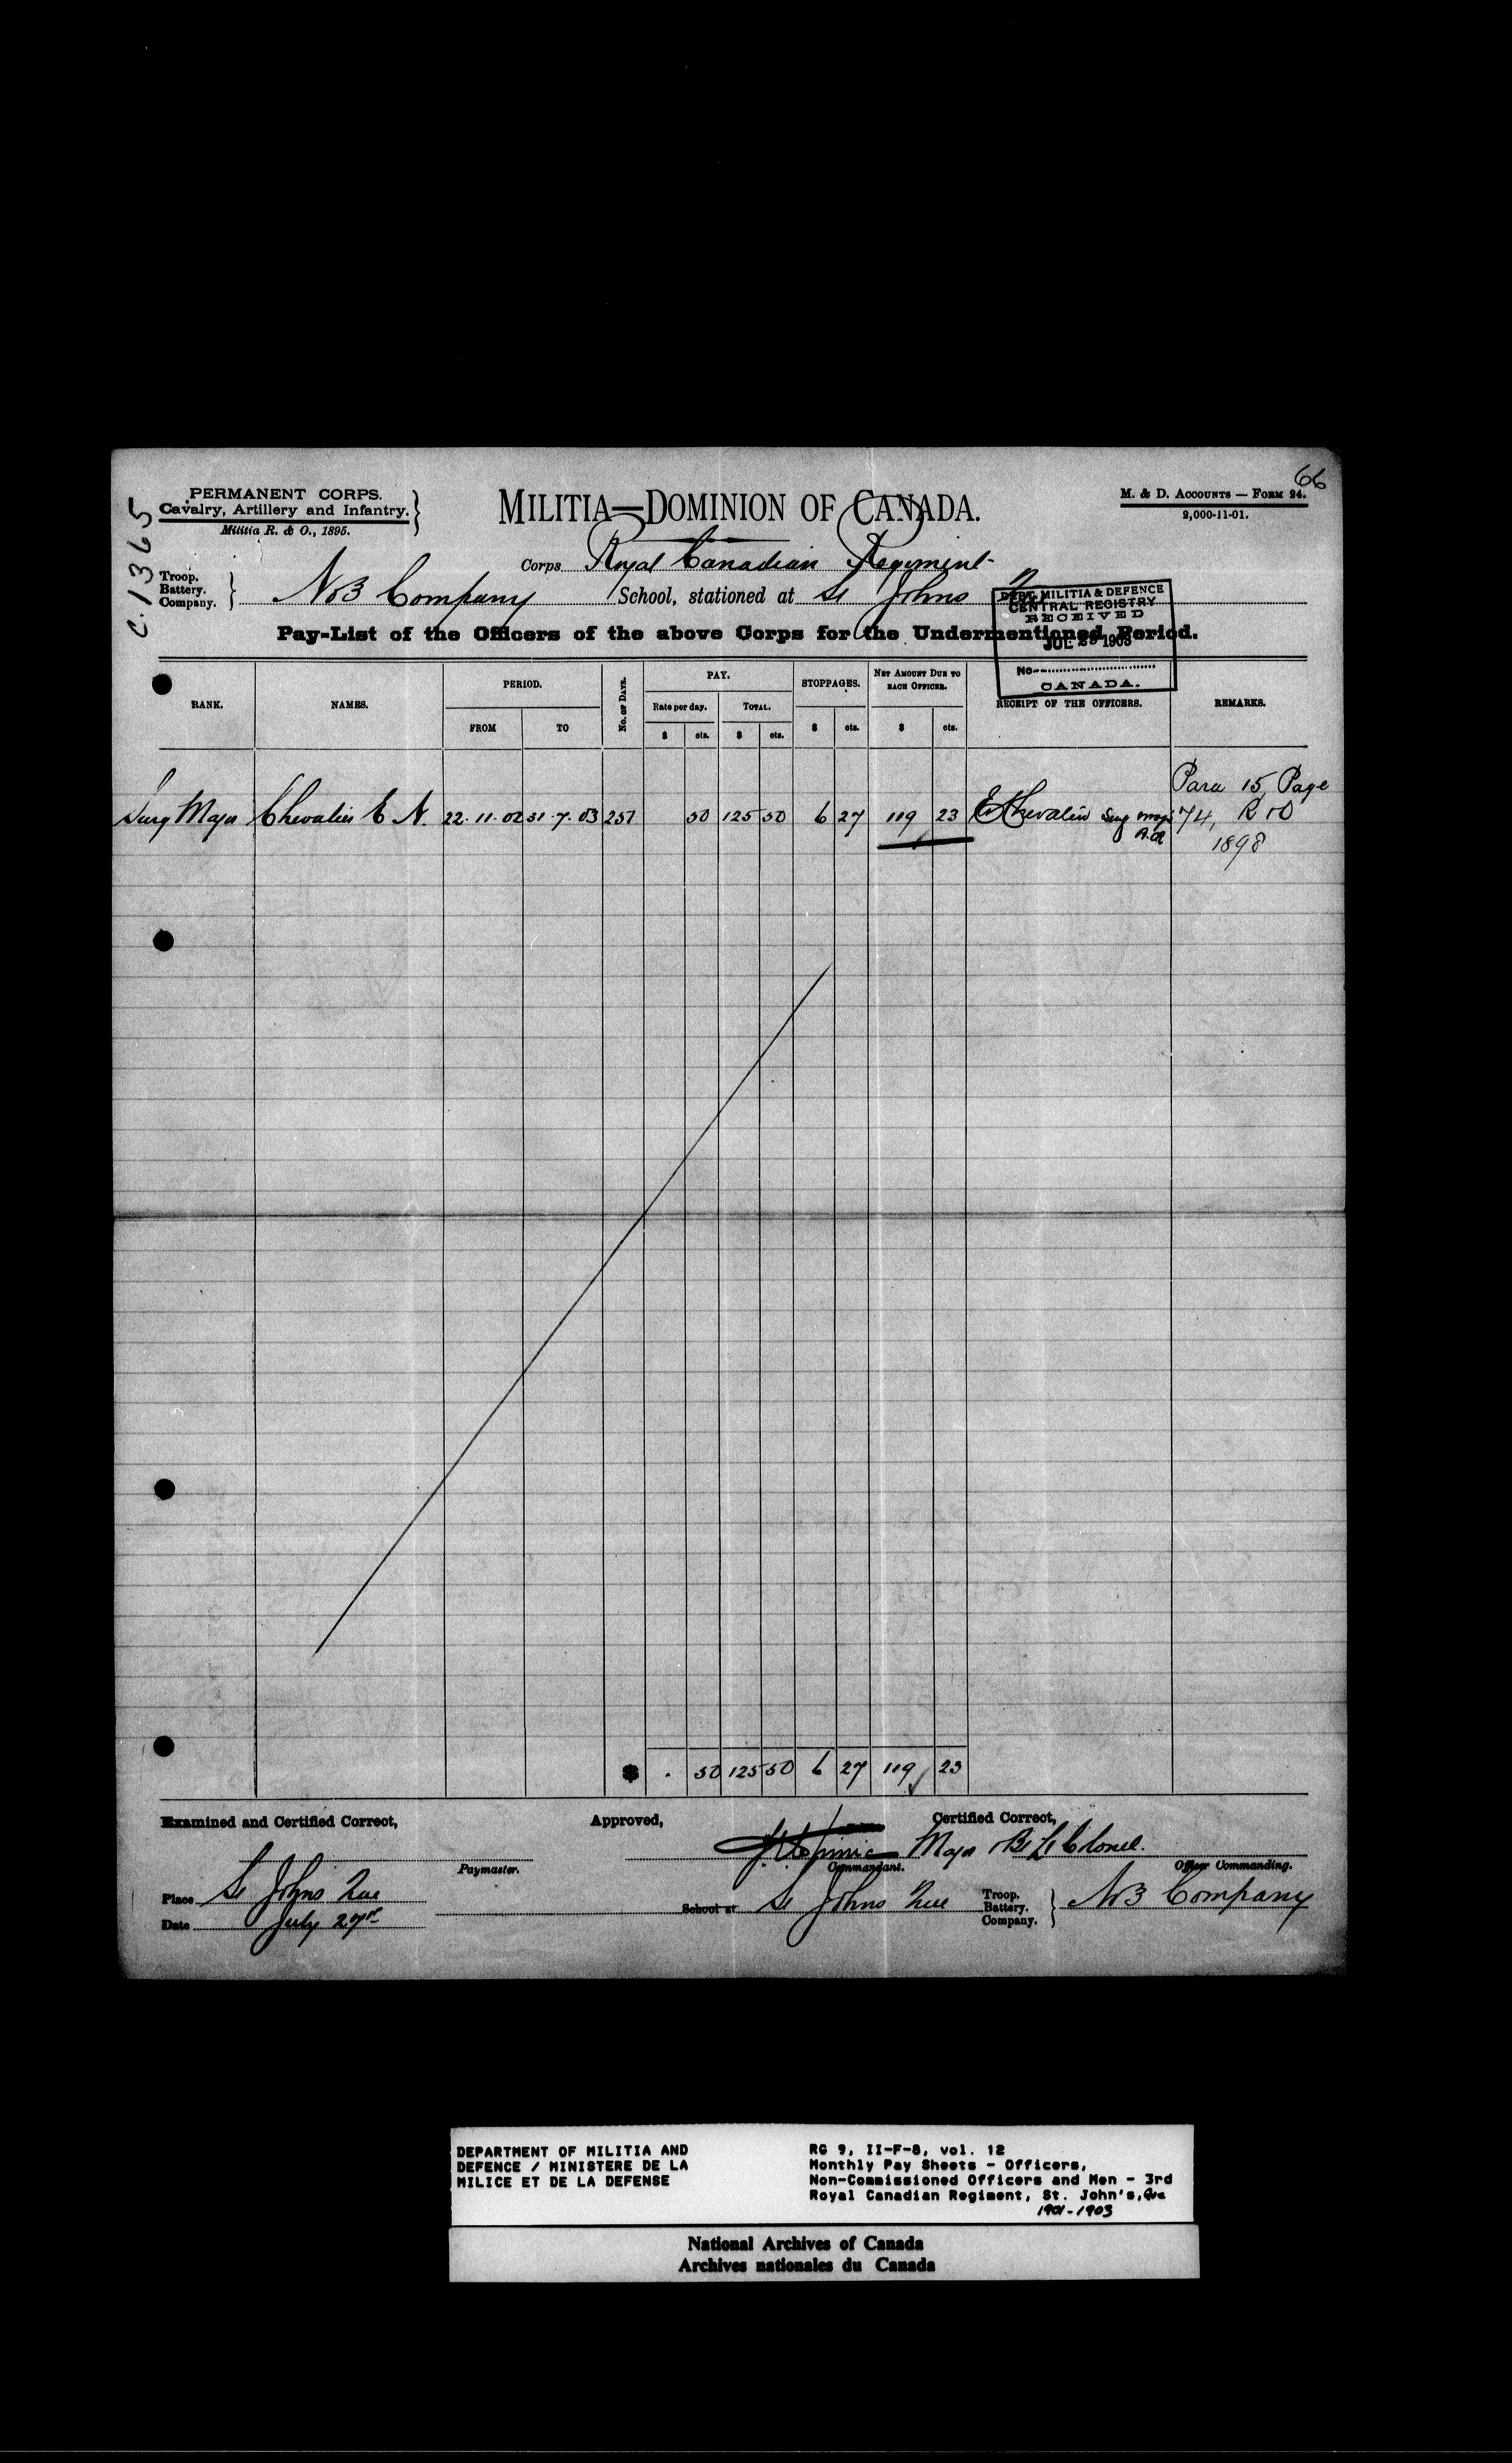 66
C.1365
PERMANENT CORPS.
Cavalry, Artillery and Infantry.
Militia R. & O., 1895.
MILITIA—DOMINION OF CANADA.
M. & D. ACCOUNTS — FORM 24.
2,000-11-01.
Corps Royal Canadian Regiment
Troop.
Battery.
Company.
No 3 Company School, stationed at St Johns
DEPT. MILITIA & DEFENCE
CENTRAL REGISTRY
RECEIVED
JUL 29 1903
No
CANADA.
Pay-List of the Officers of the above Corps for the Undermentioned Period.
RANK. NAMES. PERIOD. No. OF DAYS. PAY. STOPPAGES. NET AMOUNT DUE TO EACH OFFICER. RECEIPT OF THE OFFICERS. REMARKS.
FROM TO Rate per day. TOTAL.
$ cts. $ cts. $ cts. $ cts.
Surg Major Chevalier E N. 22.11.02 31.7.03 251 50 125 50 6 27 119 23 E N Chevalier Surg Maj Para 15, Page
74, R & O
1898
$ . 50 125 50 6 27 119 23
Examined and Certified Correct, Approved, Certified Correct,
Major Bt Lt Colonel.
Paymaster. Commandant. Officer Commanding.
Place St Johns Que
School at St Johns Que Troop.
Battery.
Company.
No 3 Company
Date July 27th
DEPARTMENT OF MILITIA AND
DEFENCE / MINISTERE DE LA
MILICE ET DE LA DEFENSE
RG 9, II-F-8, vol. 12
Monthly Pay Sheets - Officers,
Non-Commissioned Officers and Men - 3rd
Royal Canadian Regiment, St. John's, Que
1901-1903
National Archives of Canada
Archives nationales du Canada